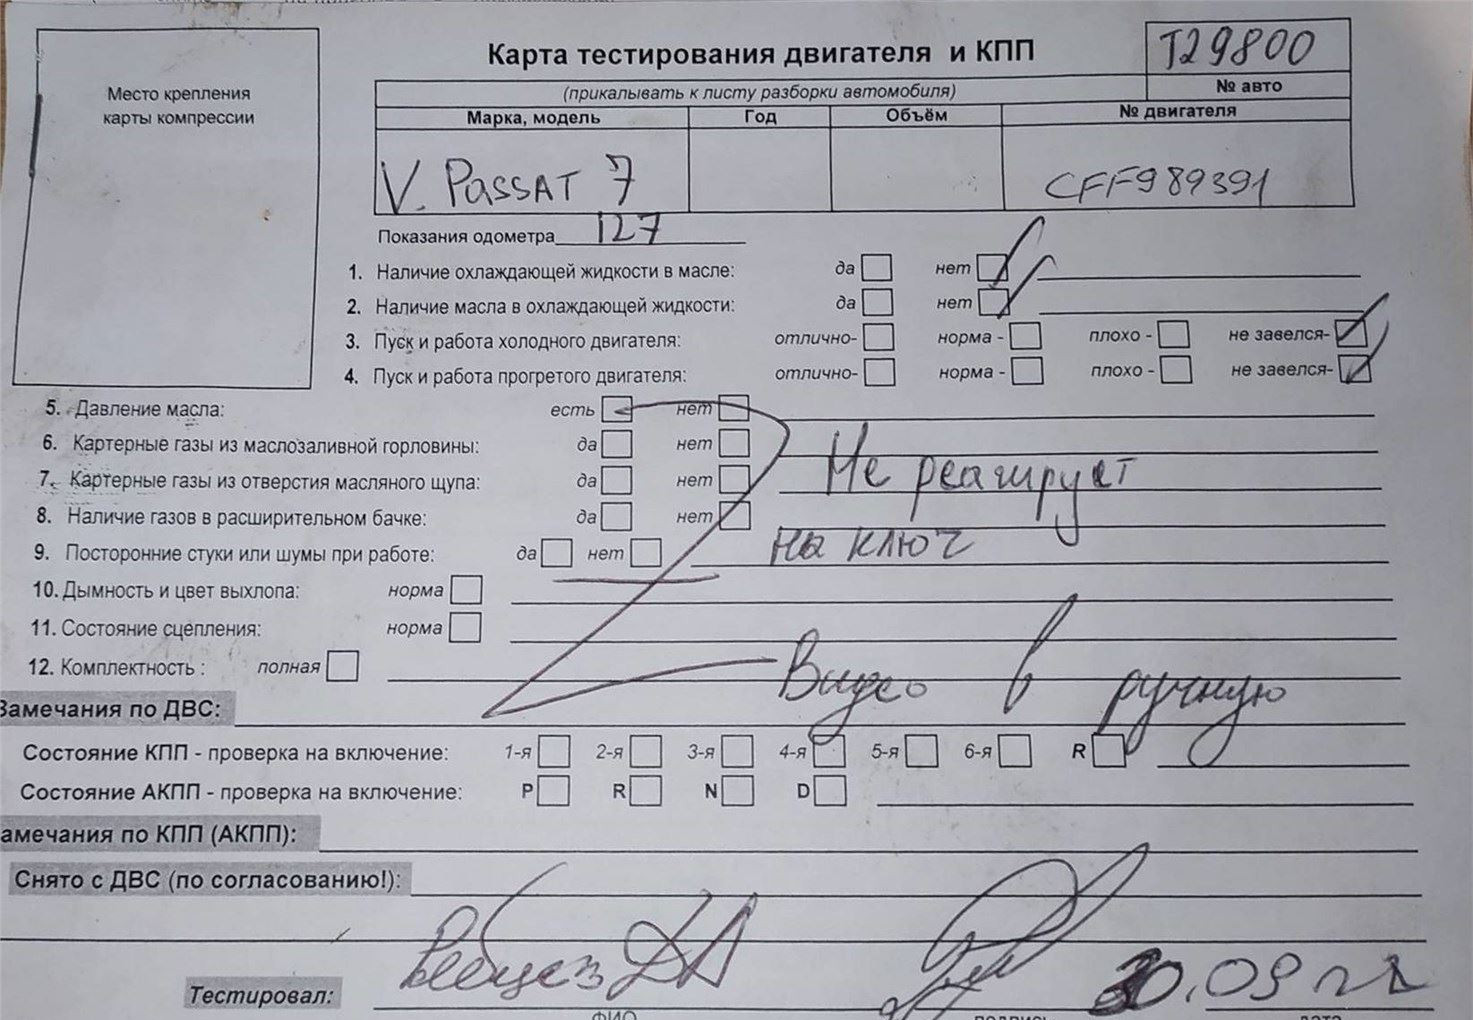 Место крепления
карты компрессии
Карта тестирования двигателя и КПП
T29800
(прикалывать к листу разборки автомобиля)
№ авто
Марка, модель Год Объём № двигателя
V. PASSAT 7 CFF989391
Показания одометра 127
1. Наличие охлаждающей жидкости в масле: да нет
2. Наличие масла в охлаждающей жидкости: да нет
3. Пуск и работа холодного двигателя: отлично- норма - плохо - не завелся-
4. Пуск и работа прогретого двигателя: отлично- норма - плохо - не завелся-
5. Давление масла: есть нет
6. Картерные газы из маслозаливной горловины: да нет
Не реагирует
7. Картерные газы из отверстия масляного щупа: да нет
8. Наличие газов в расширительном бачке: да нет
9. Посторонние стуки или шумы при работе: да нет на ключ
10. Дымность и цвет выхлопа: норма
11. Состояние сцепления: норма
12. Комплектность : полная
Видео в ручную
Замечания по ДВС:
Состояние КПП - проверка на включение: 1-я 2-я 3-я 4-я 5-я 6-я R
Состояние АКПП - проверка на включение: P R N D
амечания по КПП (АКПП):
Снято с ДВС (по согласованию!):
Тестировал:
ФИО подпись дата